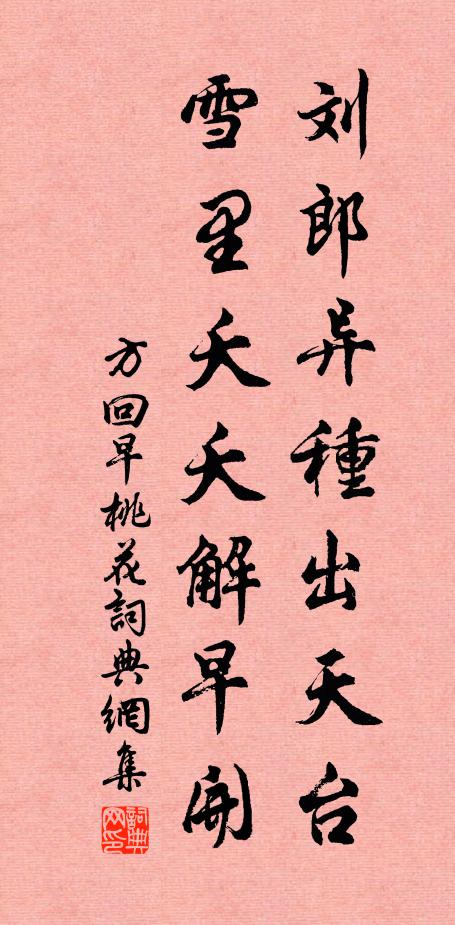 刘郎异種出天台
雪里夭夭解早開
方回早桃花詞典網集
詞典網印